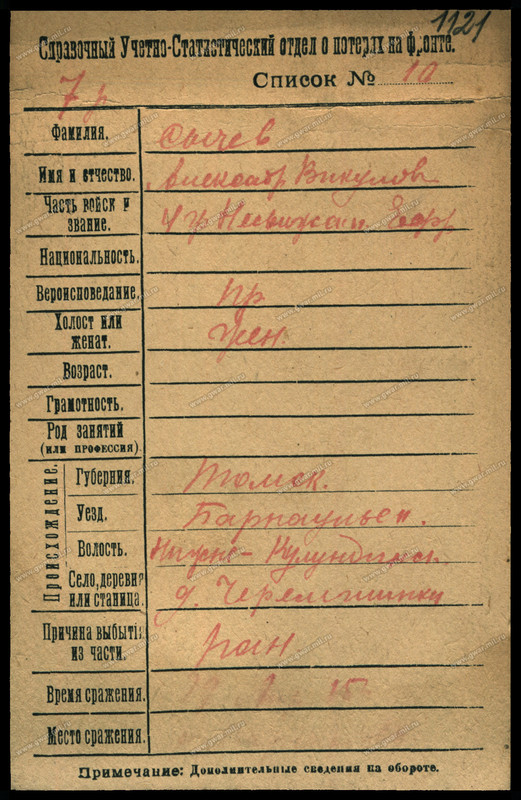 1121
Справочный Учетно-Статистический отдел о потерях на фронте.
Список № 10
7 р
Фамилия. Сычев
Имя и отчество. Александр Викулов
Часть войск и звание. Ефр
Национальность.
Вероисповедание. пр
Холост или женат. жен
Возраст.
Грамотность.
Род занятий (или профессия).
Происхождение.
Губерния. Томск.
Уезд. Барнаульск.
Волость. Нижно-Кулундинск.
Село, деревня или станица. д. Черемшинки
Причина выбытия из части. ран
Время сражения. 15
Место сражения.
Примечание: Дополнительные сведения на обороте.